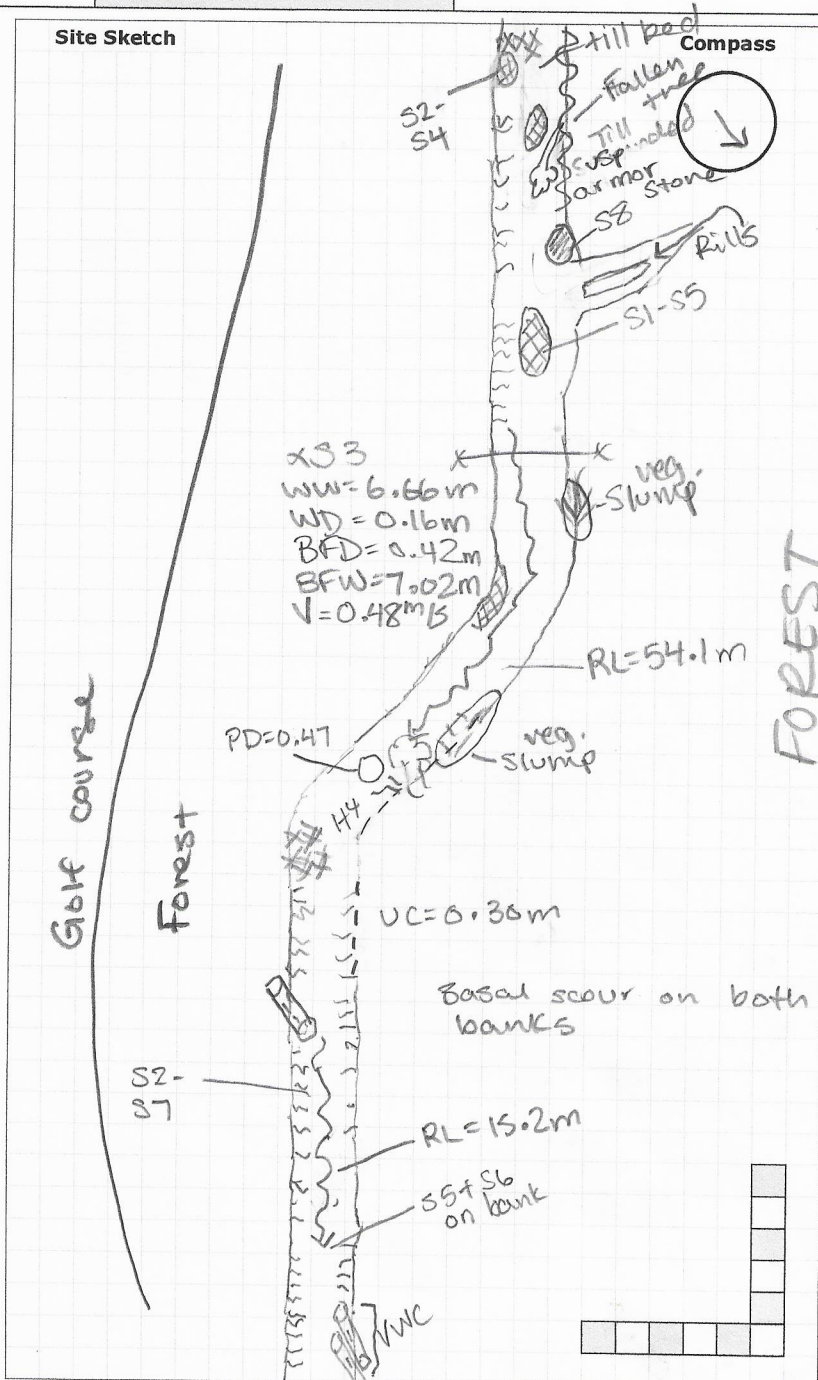 Site Sketch
Compass
till bed
Fallen
tree
Till
suspended
armor stone
S2-
S4
S8
Rills
S1-S5
xS3
WW=6.66m
WD=0.16m
BFD=0.42m
BFW=7.02m
V=0.48m/s
veg.
slump
FOREST
RL=54.1m
PD=0.47
veg.
slump
H4
Golf course
Forest
UC=0.30m
Basal scour on both
banks
S2-
S7
RL=15.2m
S5+S6
on bank
VWC